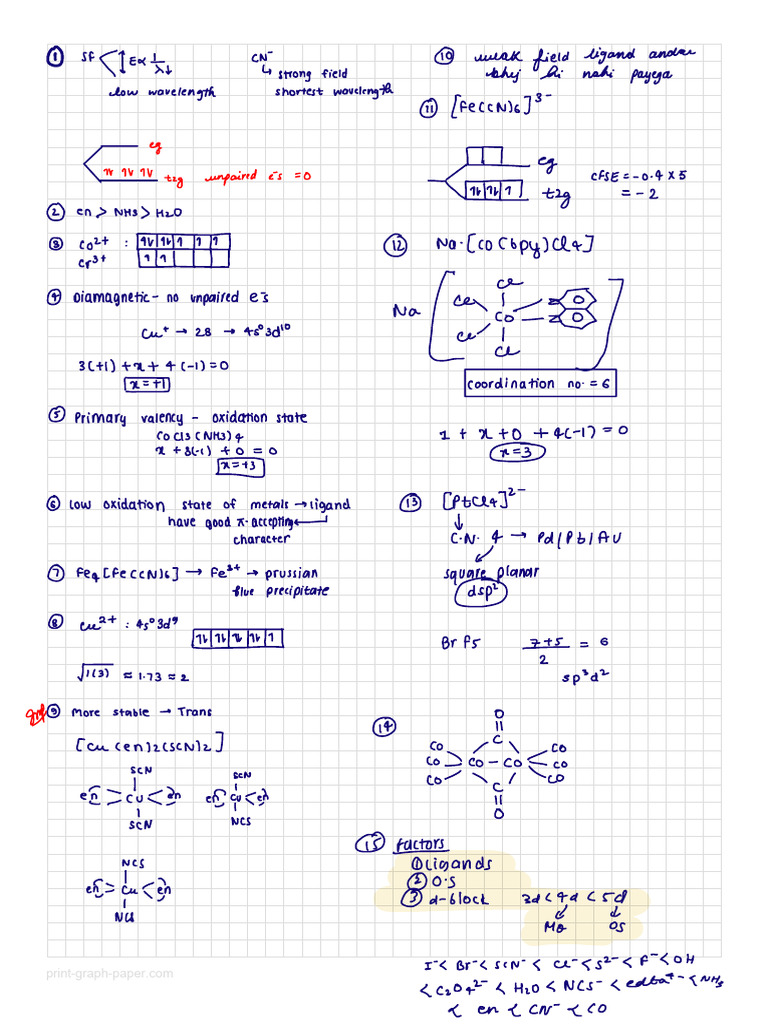 ① SF E∝ 1/λ↓ CN⁻
↳ strong field
low wavelength shortest wavelength
eg
1L 1L 1L t2g unpaired e⁻s = 0
② en > NH3 > H2O
③ Co2+ : 1L 1L 1 1 1
Cr3+ 1 1
④ Diamagnetic - no unpaired e⁻s
Cu+ → 28 → 4s⁰ 3d¹⁰
3(+1) + x + 4(-1) = 0
x = +1
⑤ Primary valency - oxidation state
COCl3(NH3)4
x + 3(-1) + 0 = 0
x = +3
⑥ Low oxidation state of metals → ligand
have good π-accepting
character
⑦ Fe4[Fe(CN)6] → Fe3+ → prussian
blue precipitate
⑧ Cu2+ : 4s⁰ 3d⁹
1L 1L 1L 1L 1
√1(3) ≈ 1.73 ≈ 2
⑨ More stable → Trans
[Cu(en)2(SCN)2]
SCN
en Cu en
SCN
SCN
en Cu en
NCS
NCS
en Cu en
NCS
print-graph-paper.com
⑩ weak field ligand andar
bhej hi nahi payega
⑪ [Fe(CN)6]3-
eg
1L 1L 1 t2g
CFSE = -0.4 x 5
= -2
⑫ Na·[CO(bpy)Cl4]
Na
Cl
Cl CO N O
Cl N O
Cl
coordination no. = 6
1 + x + 0 + 4(-1) = 0
x = 3
⑬ [PtCl4]2-
C.N. 4 → Pd/Pb/AU
square planar
dsp²
Br F5 7+5/2 = 6
sp³d²
⑭ O
C
CO CO
CO CO — CO CO
CO CO
C
O
⑮ factors
① ligands
② O.S
③ d-block 3d < 4d < 5d
Mo OS
I⁻ < Br⁻ < SCN⁻ < Cl⁻ < S²⁻ < F⁻ < OH
< C2O4²⁻ < H2O < NCS⁻ < edta⁴⁻ < NH3
< en < CN⁻ < CO